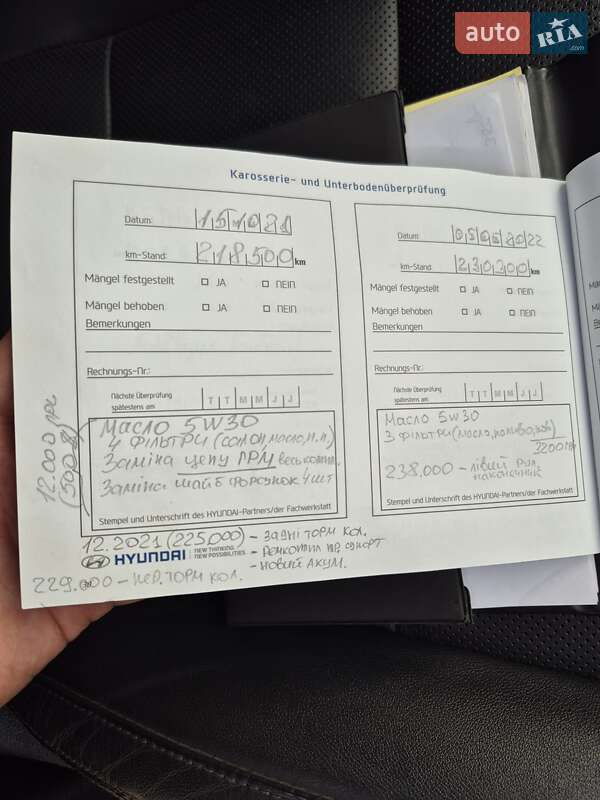 auto RIA .com
Karosserie- und Unterbodenüberprüfung
Datum: 15 10 21
km-Stand: 218500 km
Mängel festgestellt JA NEIN
Mängel behoben JA NEIN
Bemerkungen
Rechnungs-Nr.:
Nächste Überprüfung spätestens am: T T M M J J
Масло 5W30
4 фільтри (салон, масло, п.п.)
Заміна цепу ГРМ весь компл.
Заміна шайб форсунок 4 шт
Stempel und Unterschrift des HYUNDAI-Partners/der Fachwerkstatt
12.000 грн
Datum: 05 06 2022
km-Stand: 230200 km
Mängel festgestellt JA NEIN
Mängel behoben JA NEIN
Bemerkungen
Rechnungs-Nr.:
Nächste Überprüfung spätestens am: T T M M J J
Масло 5W30
3 фільтри (масло, паливо, пов.)
3200 грн
238.000 - лівий рул. наконечник
Stempel und Unterschrift des HYUNDAI-Partners/der Fachwerkstatt
12.2021 (225.000) - Задні торм кол.
HYUNDAI NEW THINKING. NEW POSSIBILITIES.
- Ремкотпл пр. супорт
- новий акум.
229.000 - пер. торм кол.